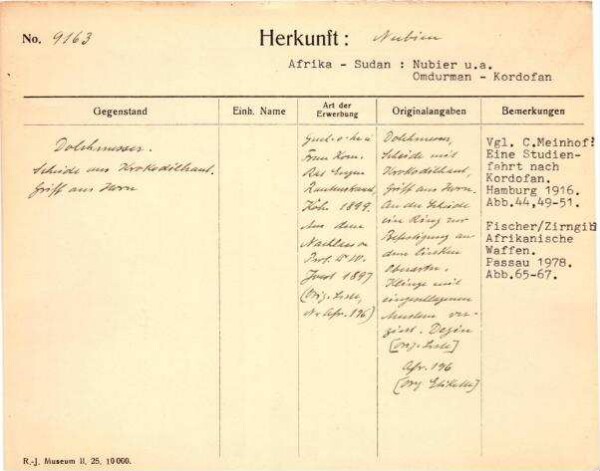 No. 9163
Herkunft: Nubien
Afrika - Sudan : Nubier u.a.
Omdurman - Kordofan
Gegenstand
Einh. Name
Art der
Erwerbung
Originalangaben
Bemerkungen
Dolchmesser.
Scheide aus Krokodilhaut.
Griff aus Horn
Frau Kom.
Rat Eugen
Rautenstrauch,
Köln 1899.
Aus dem
Nachlass v.
Prof. Dr. W.
Joest 1897
(Orig. Liste,
Afr. 196)
Dolchmesser,
Scheide mit
Krokodilhaut,
Griff aus Horn.
An der Scheide
ein Ring zur
Befestigung an
dem linken
Oberarm.
Klinge mit
eingeschlagenen
Mustern ver-
ziert.
[Orig. Liste]
Afr. 196
[Orig. Etikette]
Vgl. C.Meinhof:
Eine Studien-
fahrt nach
Kordofan.
Hamburg 1916.
Abb.44,49-51.
Fischer/Zirngibl
Afrikanische
Waffen.
Passau 1978.
Abb.65-67.
R.-J. Museum II, 25, 10000.